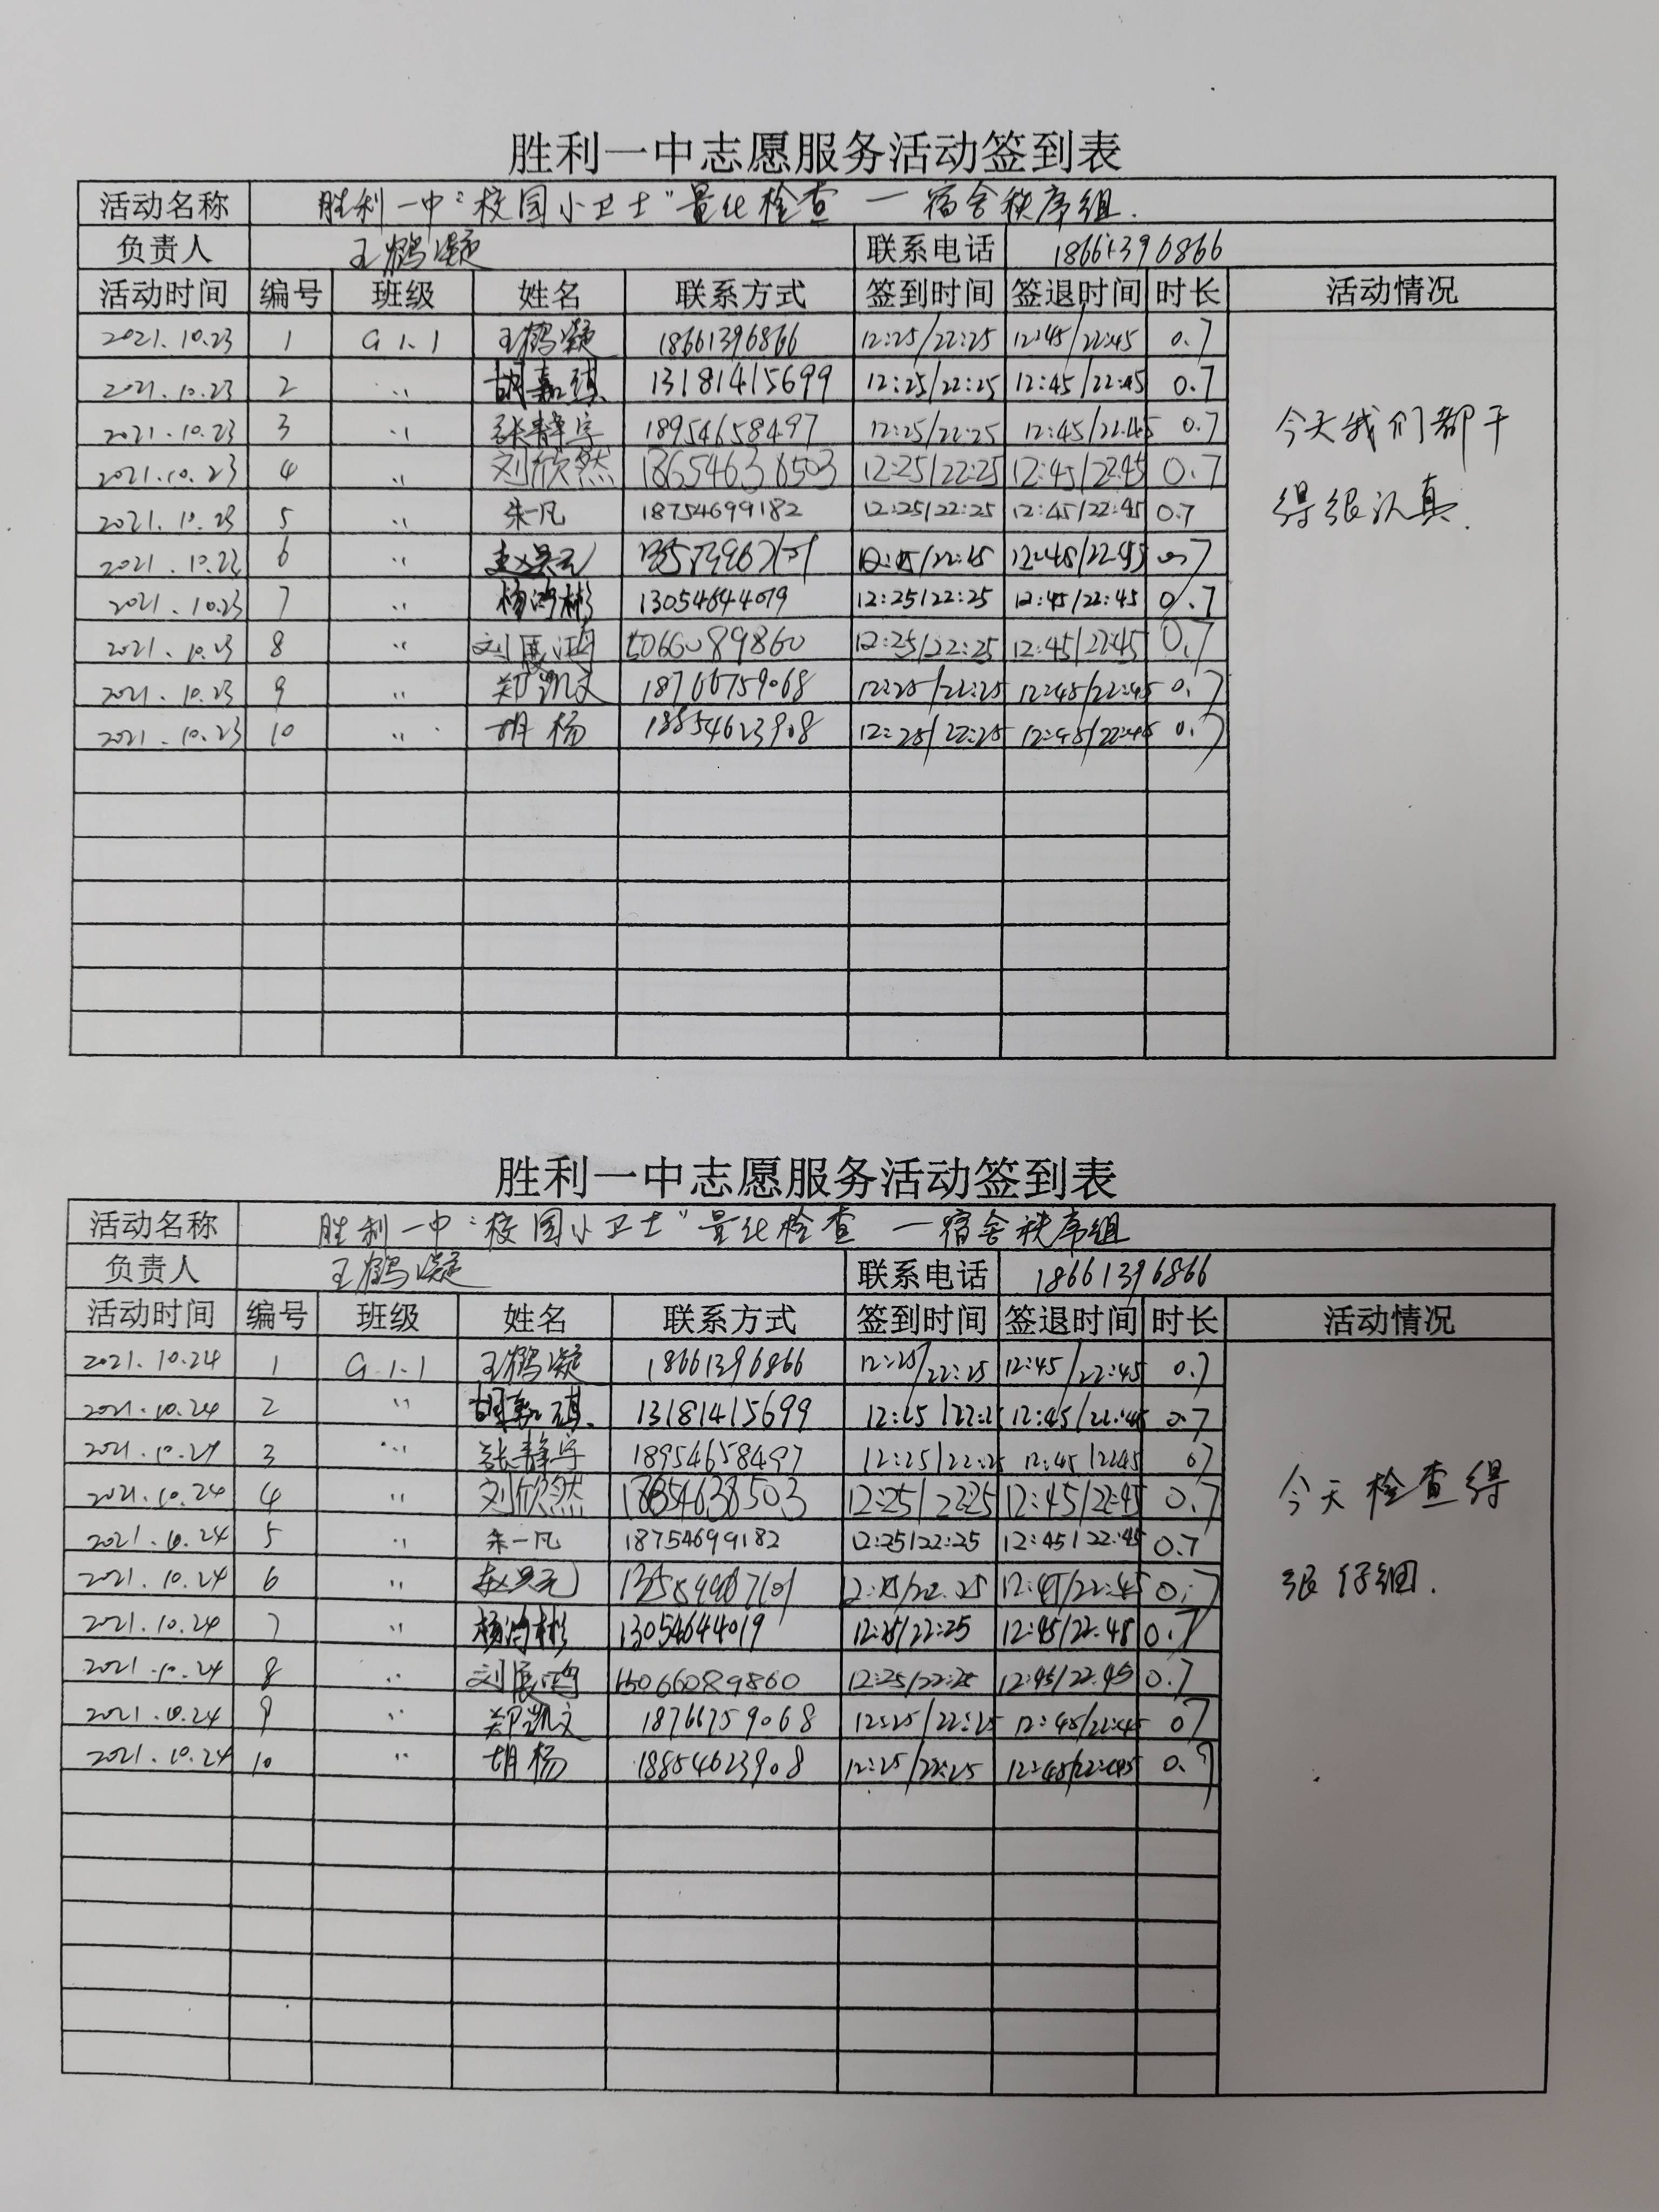 胜利一中志愿服务活动签到表
活动名称 胜利一中“校园小卫士”量化检查 — 宿舍秩序组.
负责人 王鹤凝 联系电话 18661396866
活动时间 编号 班级 姓名 联系方式 签到时间 签退时间 时长 活动情况
2021.10.23 1 G 1.1 王鹤凝 18661396866 12:25/22:25 12:45/22:45 0.7
2021.10.23 2 〃 胡嘉琪 13181415699 12:25/22:25 12:45/22:45 0.7
2021.10.23 3 〃 张静宇 18954658497 12:25/22:25 12:45/22:45 0.7
今天我们都干
2021.10.23 4 〃 刘欣然 18654638503 12:25/22:25 12:45/22:45 0.7
2021.10.23 5 〃 朱一凡 18754699182 12:25/22:25 12:45/22:45 0.7
得很认真.
2021.10.23 6 〃 12:25/22:25 12:45/22:45 0.7
2021.10.23 7 〃 杨鸿彬 13054644019 12:25/22:25 12:45/22:45 0.7
2021.10.23 8 〃 刘展鸿 15066089860 12:25/22:25 12:45/22:45 0.7
2021.10.23 9 〃 郑凯文 18766759068 12:25/22:25 12:45/22:45 0.7
2021.10.23 10 〃 胡杨 18854623908 12:25/22:25 12:45/22:45 0.7
胜利一中志愿服务活动签到表
活动名称 胜利一中“校园小卫士”量化检查 — 宿舍秩序组
负责人 王鹤凝 联系电话 18661396866
活动时间 编号 班级 姓名 联系方式 签到时间 签退时间 时长 活动情况
2021.10.24 1 G 1.1 王鹤凝 18661396866 12:25/22:25 12:45/22:45 0.7
2021.10.24 2 〃 胡嘉琪 13181415699 12:25/22:25 12:45/22:45 0.7
2021.10.24 3 〃 张静宇 18954658497 12:25/22:25 12:45/22:45 0.7
2021.10.24 4 〃 刘欣然 18654638503 12:25/22:25 12:45/22:45 0.7
今天检查得
2021.10.24 5 〃 朱一凡 18754699182 12:25/22:25 12:45/22:45 0.7
2021.10.24 6 〃 12:25/22:25 12:45/22:45 0.7
很仔细.
2021.10.24 7 〃 杨鸿彬 13054644019 12:25/22:25 12:45/22:45 0.7
2021.10.24 8 〃 刘展鸿 15066089860 12:25/22:25 12:45/22:45 0.7
2021.10.24 9 〃 郑凯文 18766759068 12:25/22:25 12:45/22:45 0.7
2021.10.24 10 〃 胡杨 18854623908 12:25/22:25 12:45/22:45 0.7